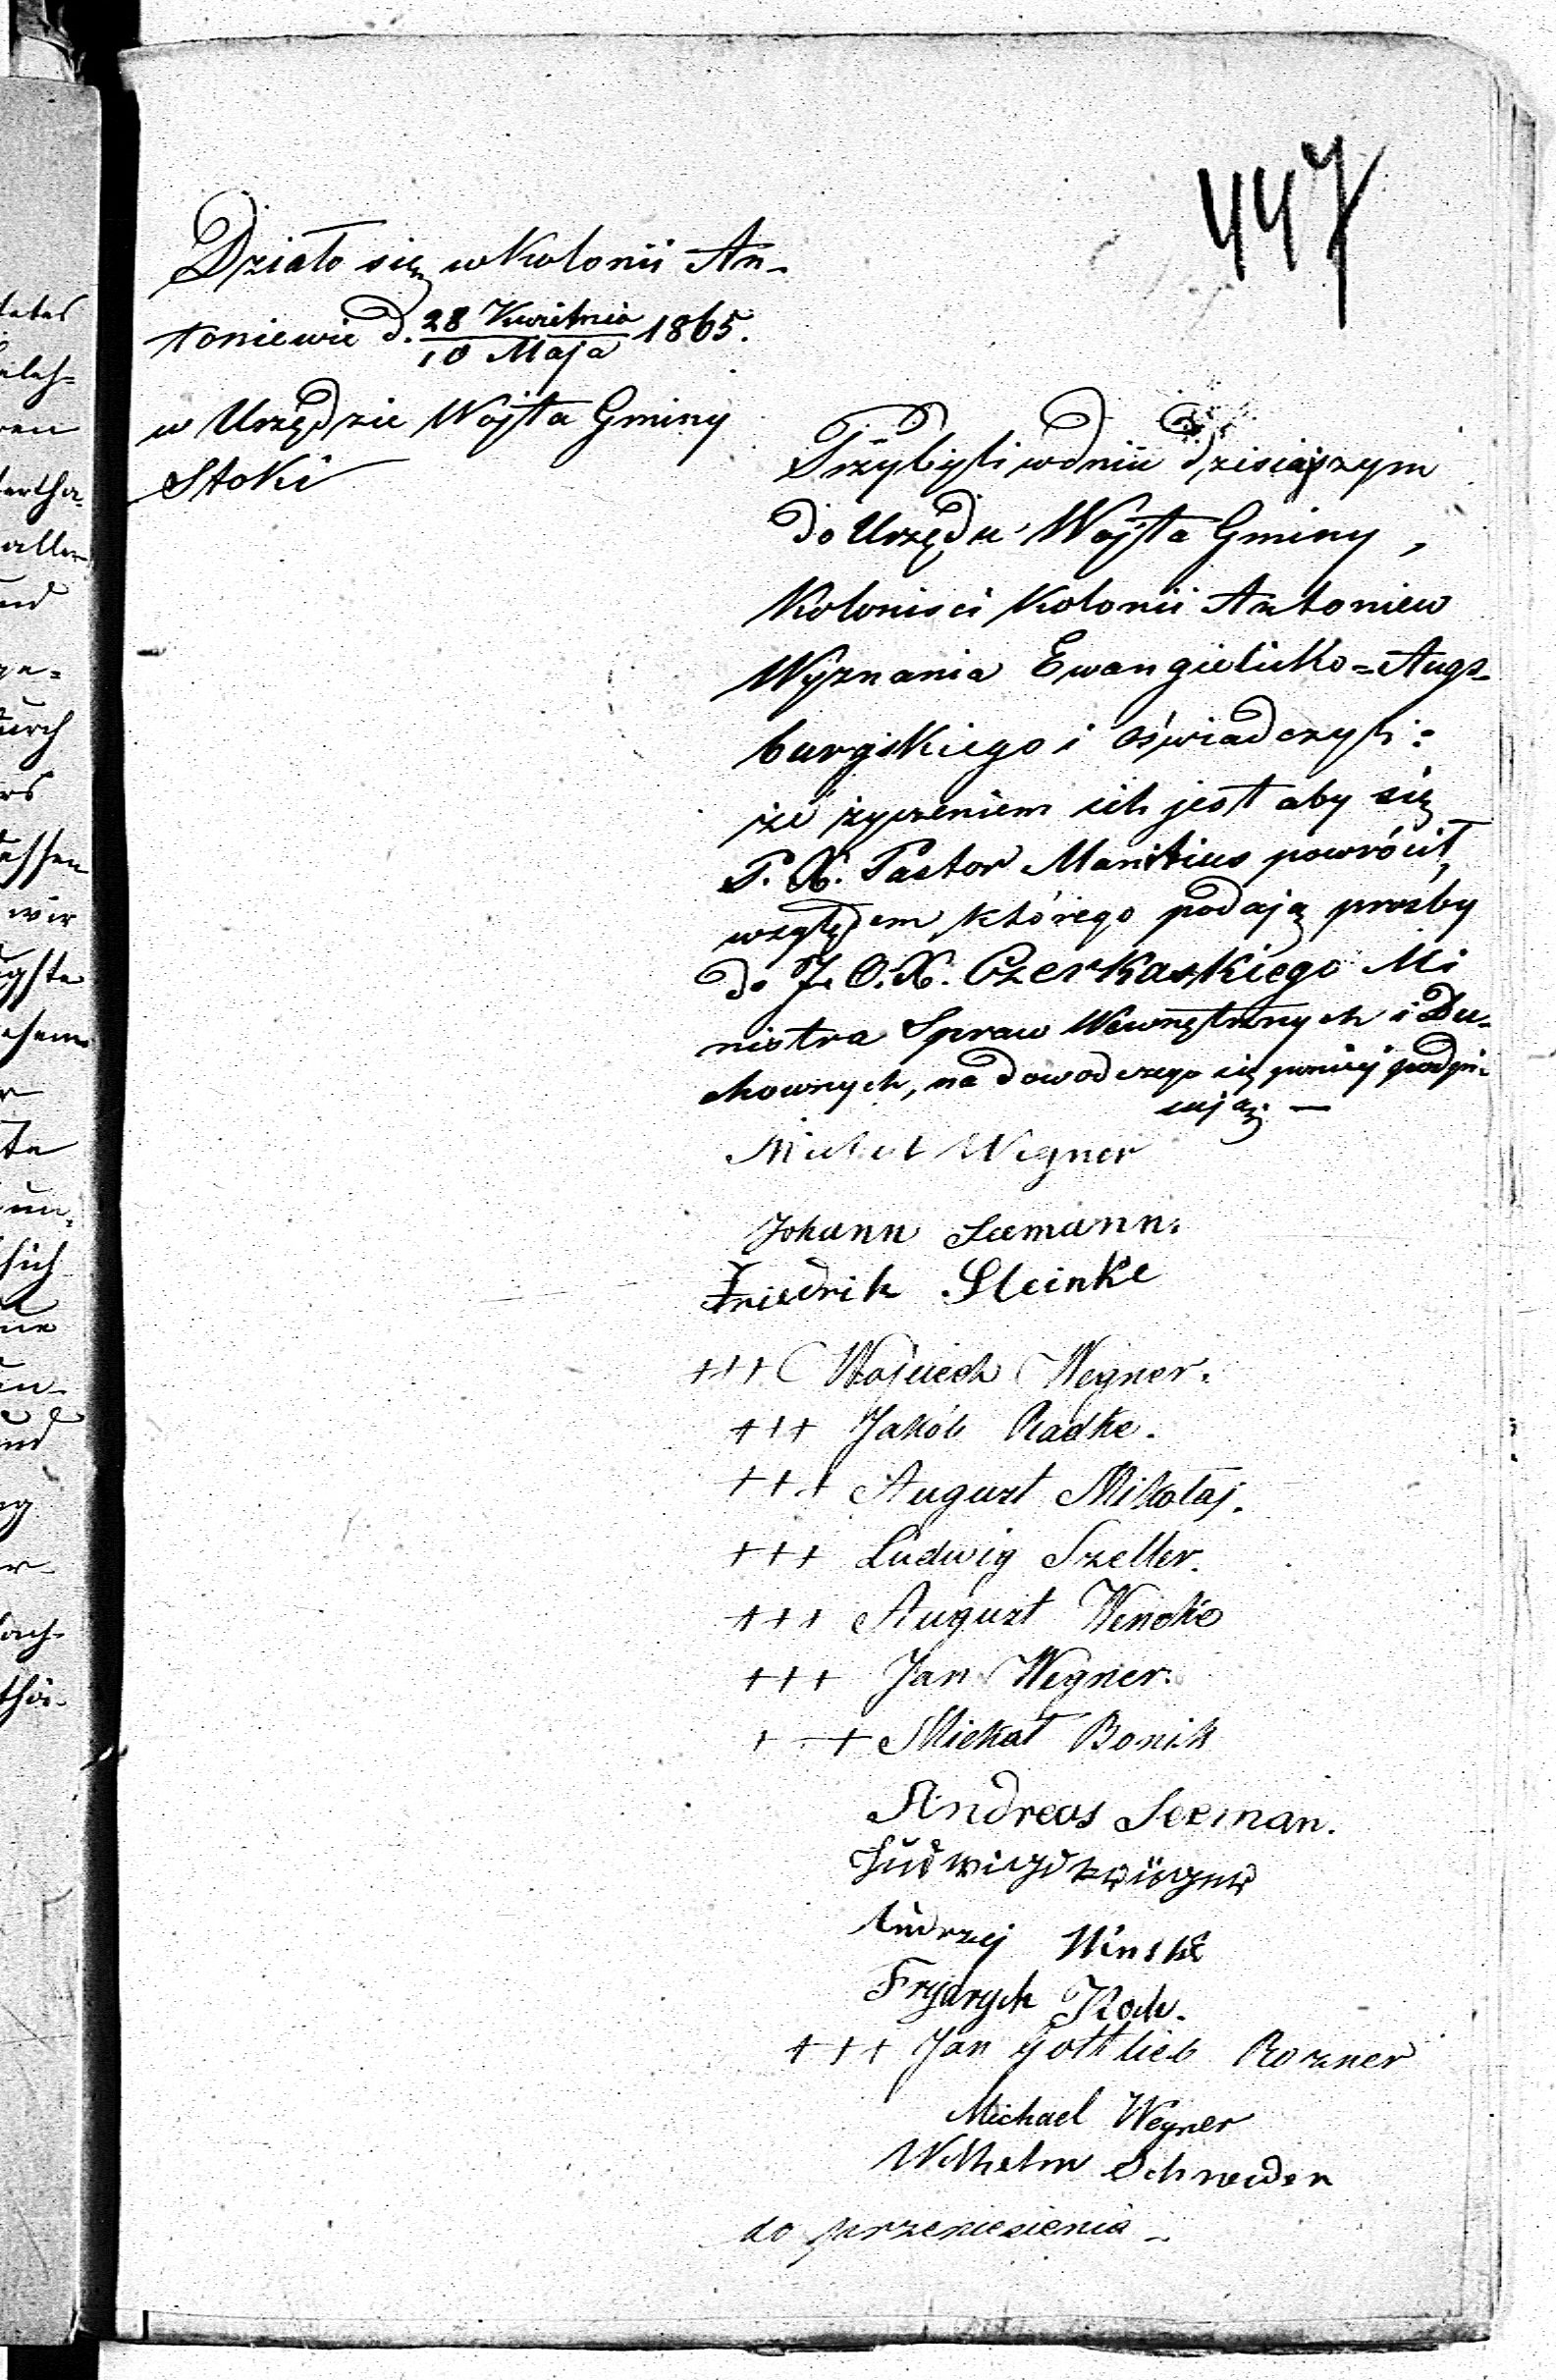 447
Działo się w Kolonii An-
toniewie d. 28 Kwietnia / 10 Maja 1865.
w Urzędzie Wójta Gminy
Stoki
Przybyli w dniu dzisiajszym
do Urzędu Wójta Gminy,
Koloniści Kolonii Antoniew
Wyznania Ewangielicko=Augs-
burgskiego i oświadczyli:
że życzeniem ich jest aby się
P. X. Pastor Manitius powrócił,
względem którego podają prośby
do J. O. X. Czerkaskiego Mi
nistra Spraw Wewnętrznych i Du-
chownych, na dowod czego się poniżej podpi-
sują: —
Michał Wegner
Johann Seemann.
Friedrik Steinke
+++ Wojciech Wegner.
+++ Jakób Radke.
+++ August Mikołaj.
+++ Ludwig Szeller.
+++ August Wenske
+++ Jan Wegner.
+ - + Michał Bonik
Andreas Seeman.
Ludwigd Krüger
Andrzej Winske
Frydrych Koch.
+++ Jan Gottlieb Rozner
Michael Wegner
Wilhelm Schneider
do przeniesienia -
tates
ren
ertha
alle
nd
urch
essen
wir
te
sich
nd